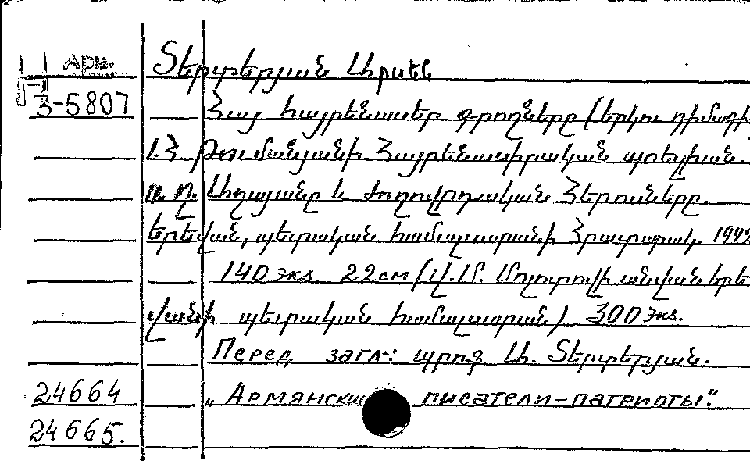 Арм. Տերտերյան Արսեն
3-5807 Հայ հայրենասեր գրողները (երկու դիմագիծ
1. Հ. Թումանյանի հայրենասիրական պոեզիան.
Աղայանը և ժողովրդական հերոսները.
Երևան, պետական համալսարանի հրատարակ. 194
140 էկզ 22 см (Վ. Մ. Մոլոտովի անվան Երե
վանի պետական համալսարան) 300 экз.
Перед загл.: պրոֆ. Ա. Տերտերյան.
24664 „Армянски писатели-патриоты".
24665.